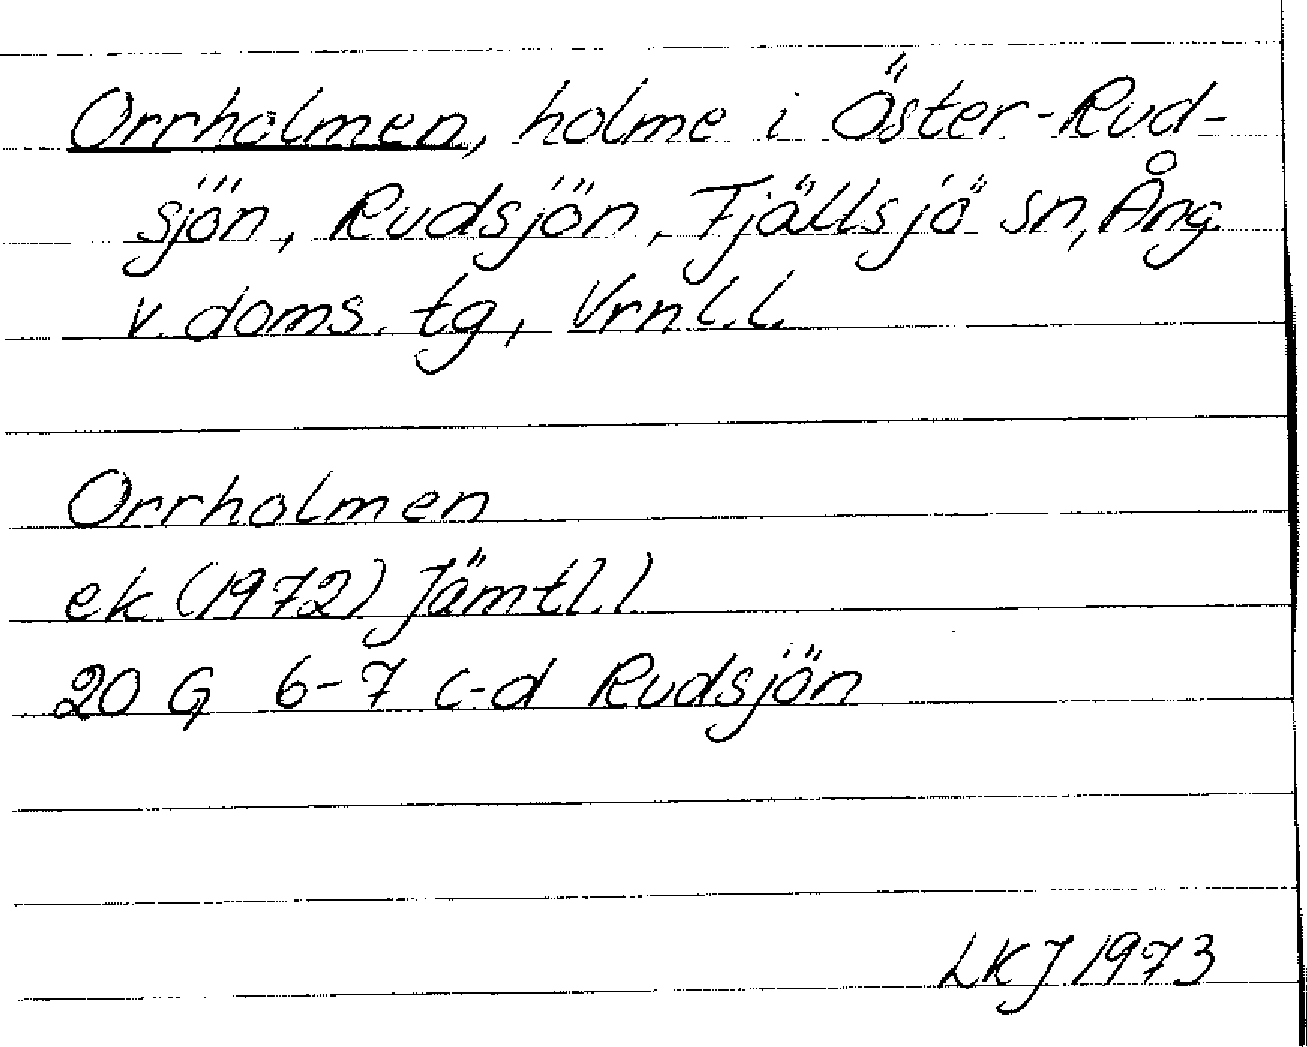 Orrholmen, holme i Öster-Rud-
sjön, Rudsjön, Fjällsjö sn, Ång.
v. doms. tg, Vrnl. l.
Orrholmen
ek (1972) Jämtl. l
20 G 6-7 c-d Rudsjön
LKJ 1973